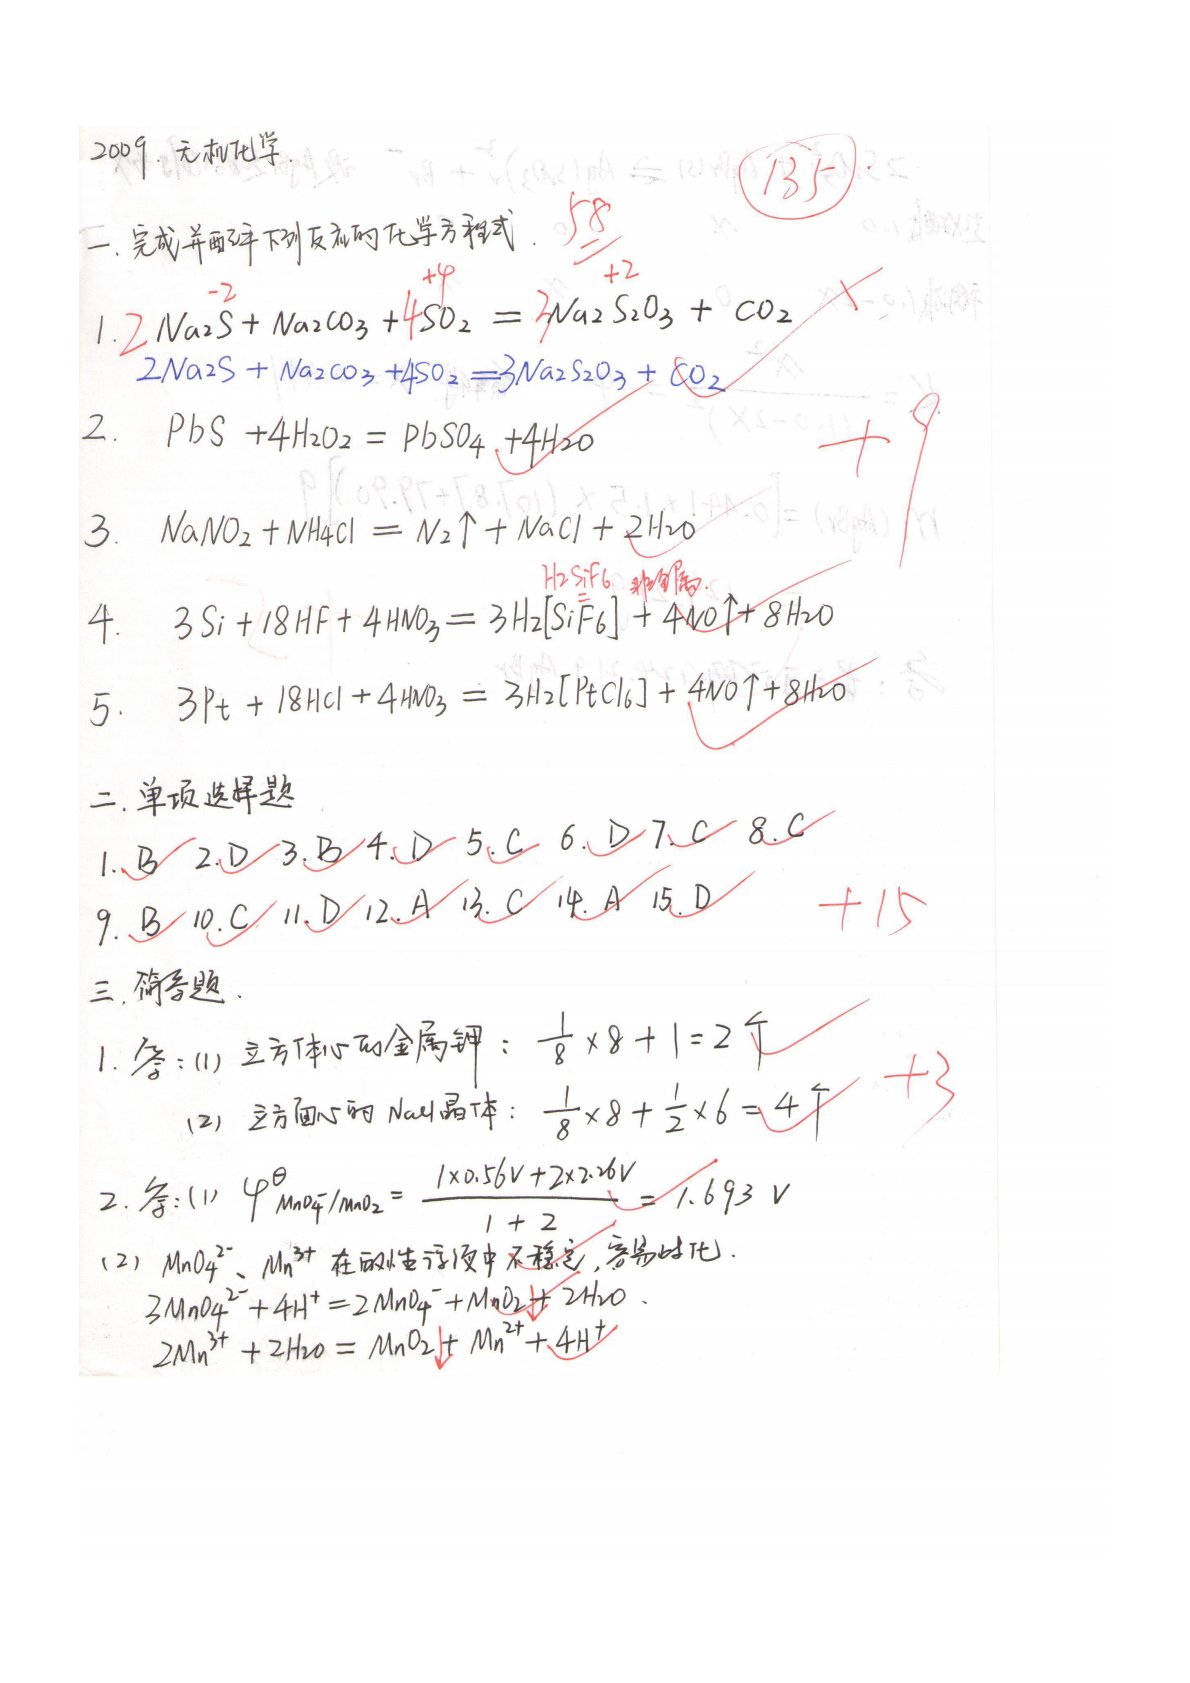 2009. 无机化学.
135
58
一. 完成并配平下列反应的化学方程式.
-2 +4 +2
1. 2Na2S + Na2CO3 + 4SO2 = 3Na2S2O3 + CO2 ×
2Na2S + Na2CO3 + 4SO2 = 3Na2S2O3 + CO2
2. PbS + 4H2O2 = PbSO4 + 4H2O
+9
3. NaNO2 + NH4Cl = N2↑ + NaCl + 2H2O
H2SiF6 非金属.
4. 3Si + 18HF + 4HNO3 = 3H2[SiF6] + 4NO↑ + 8H2O
5. 3Pt + 18HCl + 4HNO3 = 3H2[PtCl6] + 4NO↑ + 8H2O
二. 单项选择题
1. B 2. D 3. B 4. D 5. C 6. D 7. C 8. C
9. B 10. C 11. D 12. A 13. C 14. A 15. D
+15
三. 简答题.
1. 答: (1) 立方体心的金属钾: 1/8 × 8 + 1 = 2个
+3
(2) 立方面心的NaCl晶体: 1/8 × 8 + 1/2 × 6 = 4个
2. 答: (1) φ^θ MnO4^-/MnO2 = (1×0.56V + 2×2.26V)/(1+2) = 1.693 V
(2) MnO4^2-、Mn^3+ 在酸性溶液中不稳定, 容易歧化.
3MnO4^2- + 4H^+ = 2MnO4^- + MnO2↓ + 2H2O.
2Mn^3+ + 2H2O = MnO2↓ + Mn^2+ + 4H^+